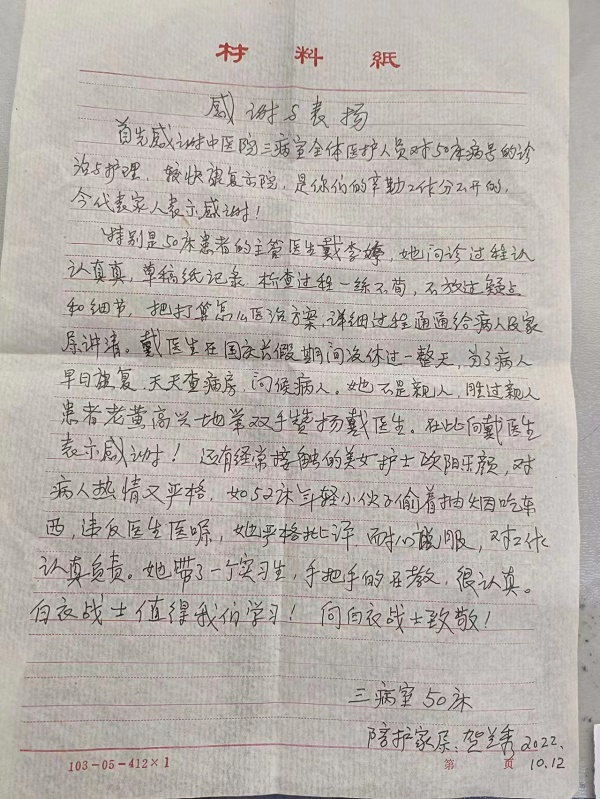 材料紙
感谢与表扬
首先感谢中医院三病室全体医护人员对50床病号的诊
治与护理，较快康复出院，是你们的辛勤工作分不开的，
今代表家人表示感谢！
特别是50床患者的主管医生戴李婷，她问诊过程认
认真真，草稿纸记录，检查过程一练不苟，不放过疑点
和细节，把打算怎么医治方案，详细过程通通给病人及家
属讲清。戴医生在国庆长假期间没休过一整天，为了病人
早日康复，天天查病房，问候病人。她不是亲人，胜过亲人
患者老黄高兴地举双手赞扬戴医生。在此向戴医生
表示感谢！还有经常接触的美女护士欧阳乐颜，对
病人热情又严格，如52床年轻小伙子偷着抽烟吃东
西，违反医生医嘱，她严格批评，而切心说服，对工作
认真负责。她带了一个实习生，手把手的在教，很认真。
白衣战士值得我们学习！向白衣战士致敬！
三病室50床
陪护家属：贺兰秀 2022.
10.12
103-05-412×1
第 页